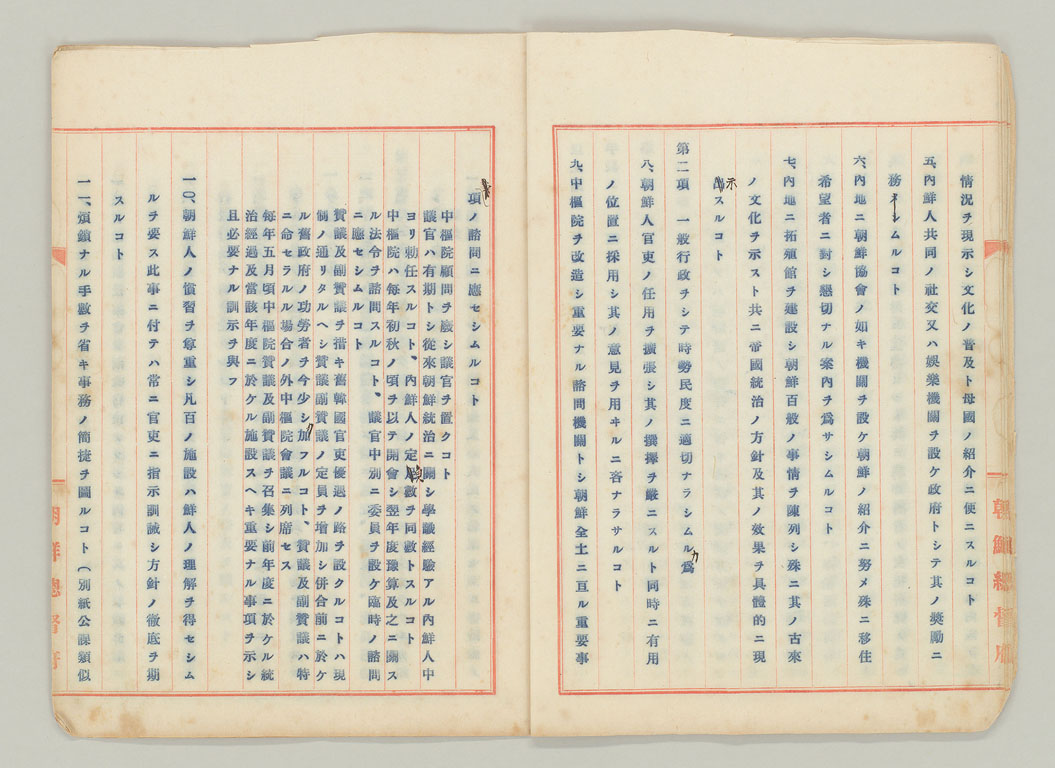 情況ヲ現示シ文化ノ普及ト母國ノ紹介ニ便ニスルコト
五、內鮮人共同ノ社交又ハ娛樂機關ヲ設ケ政府トシテ其ノ奬勵ニ
務メシムルコト
六、內地ニ朝鮮協會ノ如キ機關ヲ設ケ朝鮮ノ紹介ニ努メ殊ニ移住
希望者ニ對シ懇切ナル案內ヲ爲サシムルコト
七、內地ニ拓殖館ヲ建設シ朝鮮百般ノ事情ヲ陳列シ殊ニ其ノ古來
ノ文化ヲ示スト共ニ帝國統治ノ方針及其ノ效果ヲ具體的ニ現
示スルコト
第二項 一般行政ヲシテ時勢民度ニ適切ナラシムル爲
八、朝鮮人官吏ノ任用ヲ擴張シ其ノ撰擇ヲ嚴ニスルト同時ニ有用
ノ位置ニ採用シ其ノ意見ヲ用ヰルニ吝ナラサルコト
九、中樞院ヲ改造シ重要ナル諮問機關トシ朝鮮全土ニ亘ル重要事
朝鮮總督府
項ノ諮問ニ應セシムルコト
中樞院顧問ヲ廢シ議官ヲ置クコト
議官ハ有期トシ從來朝鮮統治ニ關シ學識經驗アル內鮮人中
ヨリ勅任スルコト、內鮮人ノ定員數ヲ同數トスルコト
中樞院ハ每年初秋ノ頃ヲ以テ開會シ翌年度豫算及之ニ關ス
ル法令ヲ諮問スルコト、議官中別ニ委員ヲ設ケ臨時ノ諮問
ニ應セシムルコト
贊議及副贊議ヲ措キ舊韓國官吏優遇ノ路ヲ設クルコトハ現
制ノ通リタルヘシ贊議副贊議ノ定員ヲ增加シ併合前ニ於ケ
ル舊政府ノ功勞者ヲ今少シク加フルコト、贊議及副贊議ハ特
ニ命セラルル場合ノ外中樞院會議ニ列席セス
每年五月頃中樞院贊議及副贊議ヲ召集シ前年度ニ於ケル統
治經過及當該年度ニ於ケル施設スヘキ重要ナル事項ヲ示シ
且必要ナル訓示ヲ與フ
一〇、朝鮮人ノ慣習ヲ尊重シ凡百ノ施設ハ鮮人ノ理解ヲ得セシム
ルヲ要ス此事ニ付テハ常ニ官吏ニ指示訓誡シ方針ノ徹底ヲ期
スルコト
一一、煩鎖ナル手數ヲ省キ事務ノ簡捷ヲ圖ルコト（別紙公課類似
朝鮮總督府